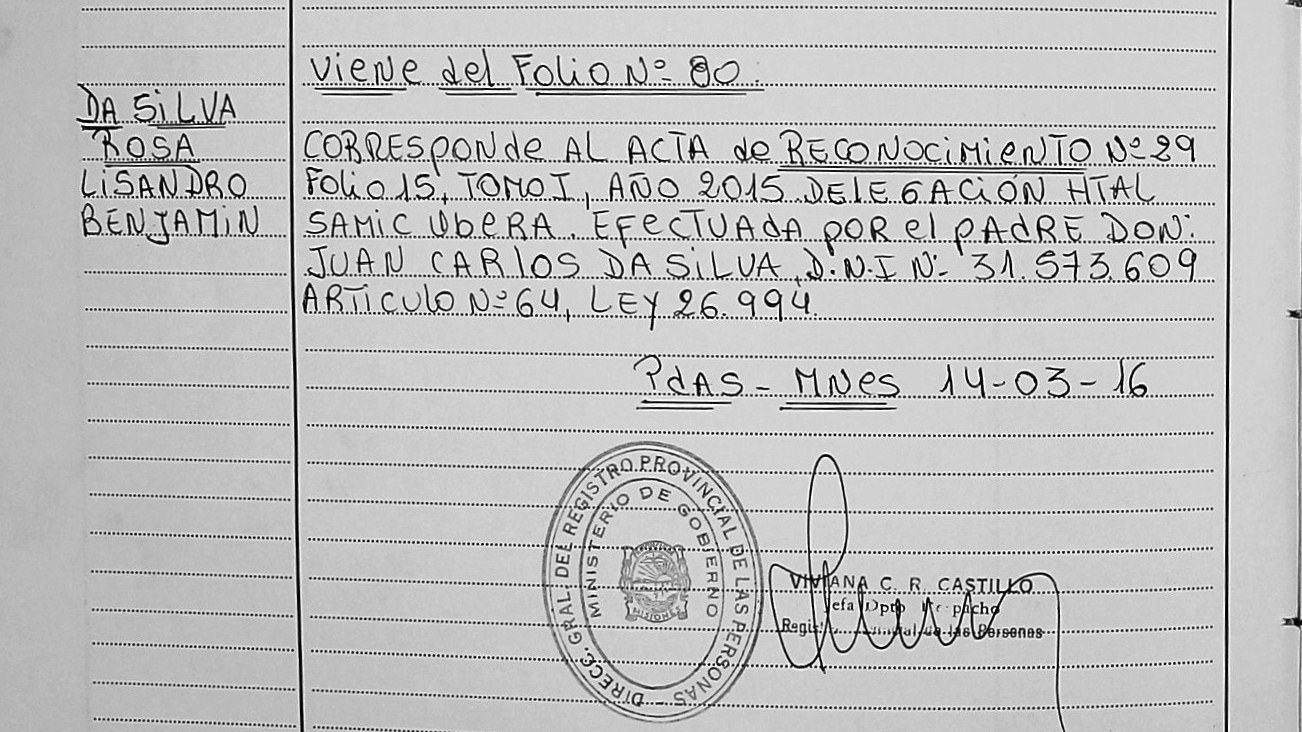 Viene del Folio Nº 80.
DA SiLVA
ROSA
LiSANDRO
BENJAMiN
CORRESponde AL ACTA de RECONOCiMiENTO Nº 29
Folio 15, TOMO I, AÑO 2015. DELEGACiÓN HTAL
SAMIC ObERA. EFECTUAdA pOR el pAdRE DON:
JUAN CARlOS DA SiLVA, D.N.I Nº 31.573.609
ARTiCulO Nº 64, LEy 26.994.
PdAS - MNes 14-03-16
DIRECC. GRAL. DEL REGISTRO PROVINCIAL DE LAS PERSONAS
MINISTERIO DE GOBIERNO
MISIONES
VIVIANA C. R. CASTILLO
Jefa Dpto
de las Personas